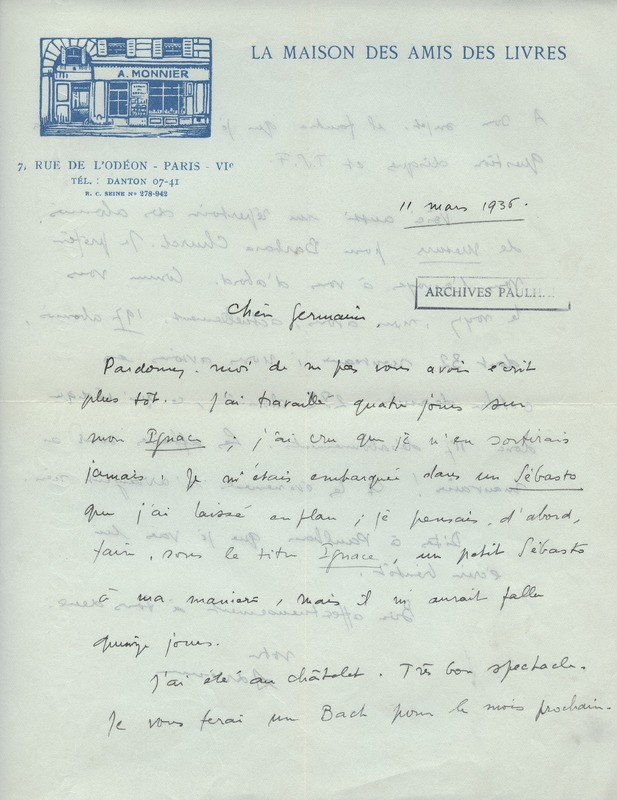 A. MONNIER
LA MAISON DES AMIS DES LIVRES
7, RUE DE L'ODÉON - PARIS - VIe
TÉL. : DANTON 07-41
R. C. SEINE No 278-942
11 mars 1936.
ARCHIVES PAULH
Chère Germaine,
Pardonnez-moi de ne pas vous avoir écrit
plus tôt. J'ai travaillé quatre jours sur
mon Ignace ; j'ai cru que je n'en sortirais
jamais, je m'étais embarquée dans un Sébasto
que j'ai laissé en plan ; je pensais, d'abord,
faire, sous le titre Ignace, un petit Sébasto
à ma manière, mais il m'aurait fallu
quinze jours.
J'ai été au Châtelet. Très bon spectacle.
Je vous ferai un Bach pour le mois prochain.